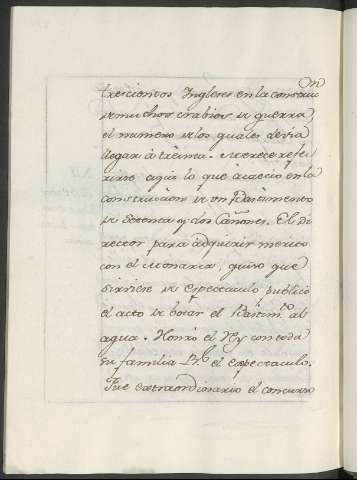 on
treicientos Ingleses en la construc
de muchos nabios de guerra,
el numero de los quales devia
llegar à treinta. Merece refe
rirse aqui lo que acaeció en la
construcion de un Bastimento
de setenta y dos Cañones. El di
rector para adquirir merito
con el Monarca, quiso que
sirviese de espectaculo publico
el acto de botar el Bastim.to al
agua. Honrò el Rey con toda
su familia R.l el espectaculo.
Fue extraordinario el concurso